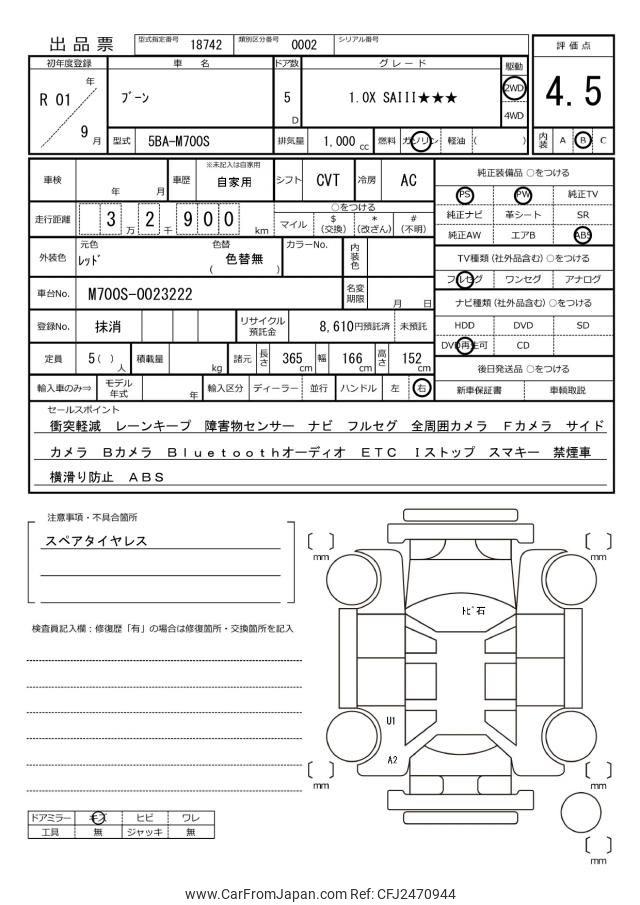 出品票 型式指定番号 18742 類別区分番号 0002 シリアル番号
評価点
4.5
内装 A B C
初年度登録 車名 ドア数 グレード 駆動
R 01 年 9 月
ブーン
5 D
1.0X SAIII★★★
2WD
4WD
型式 5BA-M700S 排気量 1,000 cc 燃料 ガソリン 軽油 ( )
車検 年 月 車歴 ※未記入は自家用 自家用 シフト CVT 冷房 AC
走行距離 3 2 9 0 0 万 千 km
○をつける
マイル $ (交換) * (改ざん) # (不明)
外装色 元色 レッド 色替 ( 色替無 ) カラーNo. 内装色
車台No. M700S-0023222 名変期限 月 日
登録No. 抹消 リサイクル預託金 8,610円預託済 未預託
定員 5( ) 人 積載量 kg 諸元 長さ 365 cm 幅 166 cm 高さ 152 cm
輸入車のみ⇒ モデル年式 年 輸入区分 ディーラー 並行 ハンドル 左 右
純正装備品 ○をつける
PS PW 純正TV
純正ナビ 革シート SR
純正AW エアB ABS
TV種類 (社外品含む) ○をつける
フルセグ ワンセグ アナログ
ナビ種類 (社外品含む) ○をつける
HDD DVD SD
DVD再生可 CD
後日発送品 ○をつける
新車保証書 車輌取説
セールスポイント
衝突軽減 レーンキープ 障害物センサー ナビ フルセグ 全周囲カメラ Fカメラ サイド
カメラ Bカメラ Bluetoothオーディオ ETC Iストップ スマキー 禁煙車
横滑り防止 ABS
注意事項・不具合箇所
スペアタイヤレス
検査員記入欄：修復歴「有」の場合は修復箇所・交換箇所を記入
mm
mm
トビ石
U1
A2
mm
mm
mm
ドアミラー キズ ヒビ ワレ
工具 無 ジャッキ 無
www.CarFromJapan.com Ref: CFJ2470944